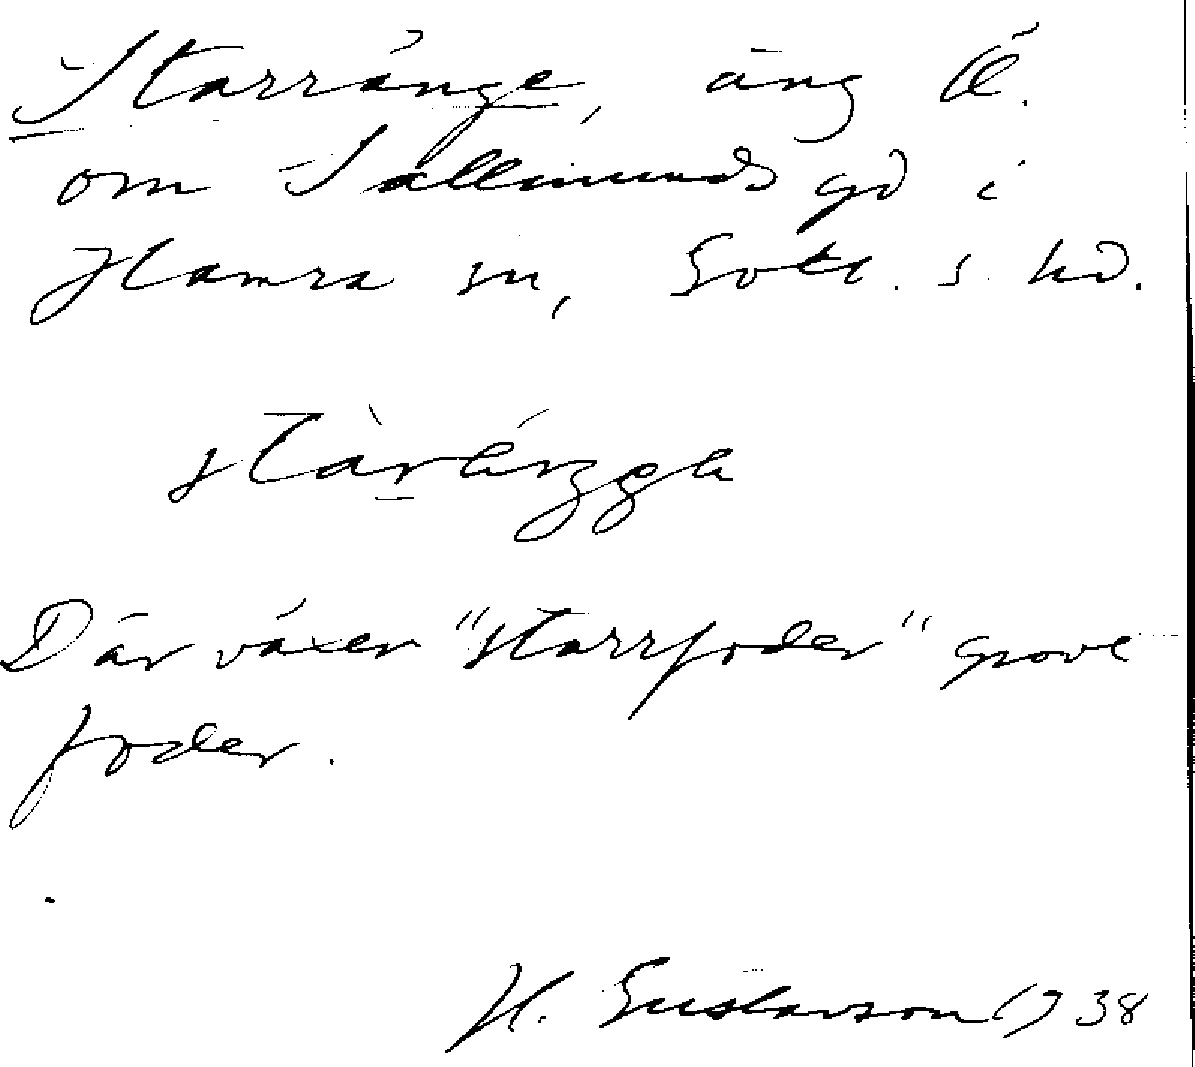 Starränge, äng Ö.
om Sallmunds gd i
Hamra sn, Gotl. s. hd.
Där växer "starrfoder" grovt
foder.
H. Gustavson 1938